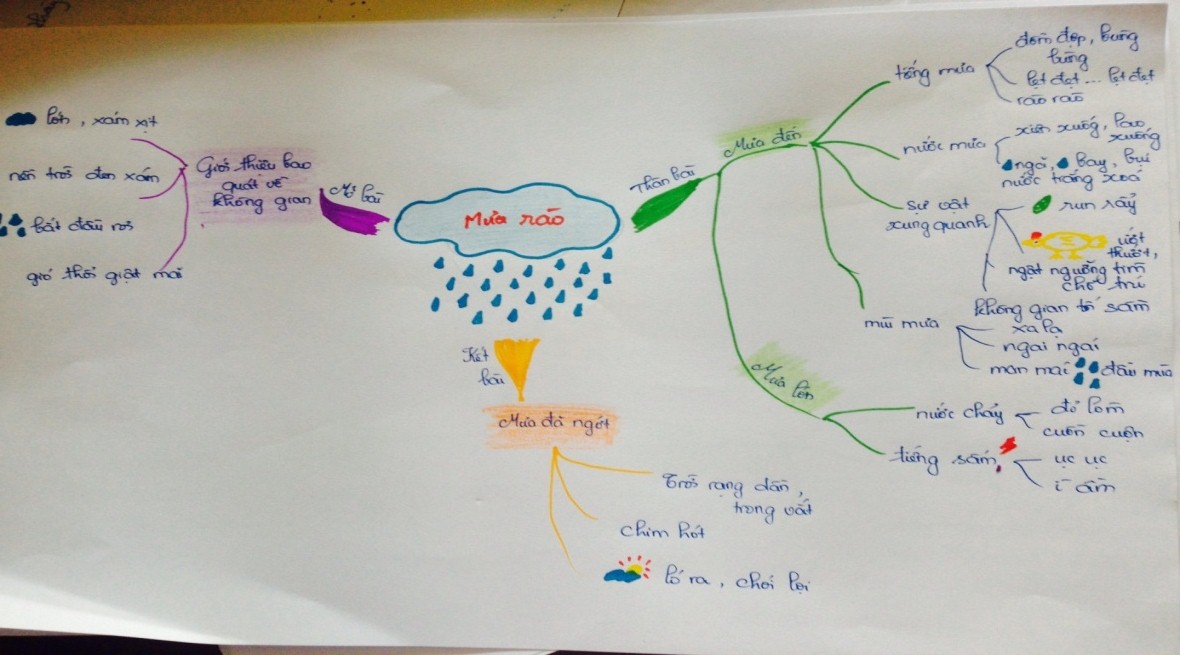 Mưa rào
Mở bài
Giới thiệu bao
quát về
không gian
lớn, xám xịt
nền trời đen xám
bắt đầu rơi
gió thổi giật mái
Thân bài
Mưa đến
tiếng mưa
đồm độp, bùng
bùng
lẹt đẹt ... lẹt đẹt
rào rào
nước mưa
xiên xuống, lao
xuống
ngả, bay, bụi
nước trắng xoá
sự vật
xung quanh
run rẩy
ướt
thướt,
ngật ngưỡng tìm
chỗ trú
không gian tối sầm
mùi mưa
xa lạ
ngai ngái
man mái đầu mùa
Mưa lớn
nước chảy
đỏ lòm
cuồn cuộn
tiếng sấm
ục ục
ì ầm
Kết
bài
Mưa đã ngớt
Trời rạng dần,
trong vắt
chim hót
ló ra, chói lọi